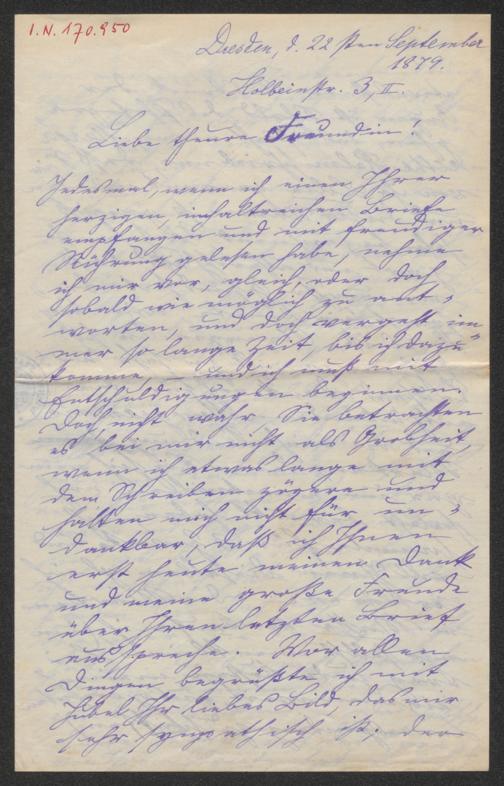 I.N. 170.950
Dresden, d. 22 sten September
1879.
Holbeinstr. 3, II.
Liebe theure Freundin!
Jedesmal, wenn ich einen Ihrer
herzigen, inhaltreichen Briefe
empfangen und mit freudiger
Rührung gelesen habe, nehme
ich mir vor, gleich, oder doch
sobald wie möglich zu ant-
worten, und doch vergeht im-
mer so lange Zeit, bis ich dazu
komme und ich muß mit
Entschuldigungen beginnen.
Doch, nicht wahr, Sie betrachten
es bei mir nicht als Grobheit,
wenn ich etwas lange mit
dem Schreiben zögere und
halten mich nicht für un-
dankbar, daß ich Ihnen
erst heute meinen Dank
und meine große Freude
über Ihren letzten Brief
ausspreche. Vor allen
Dingen begrüßte ich mit
Jubel Ihr liebes Bild, das mir
sehr sympathisch ist; der